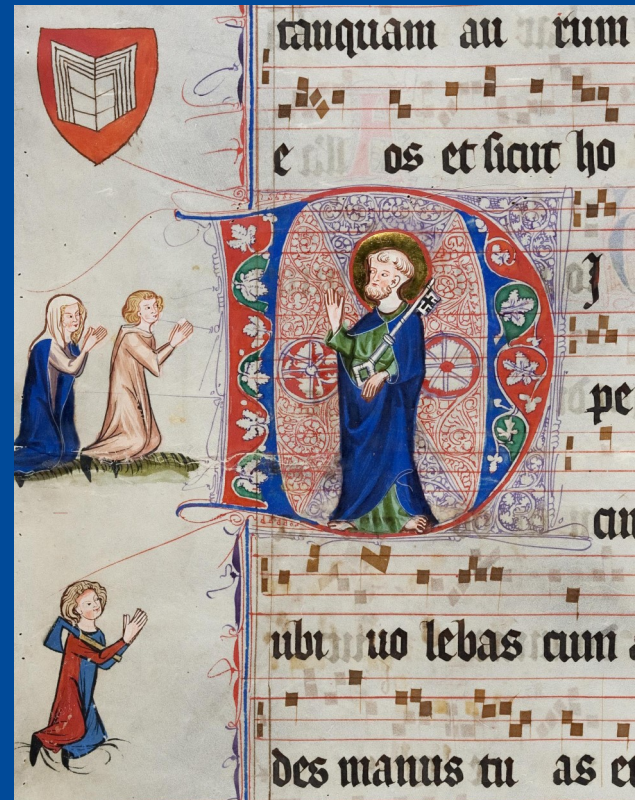 tanquam au rum
e os et sicut ho
D I
pe
cin
ubi uo lebas cum a
des manus tu as et